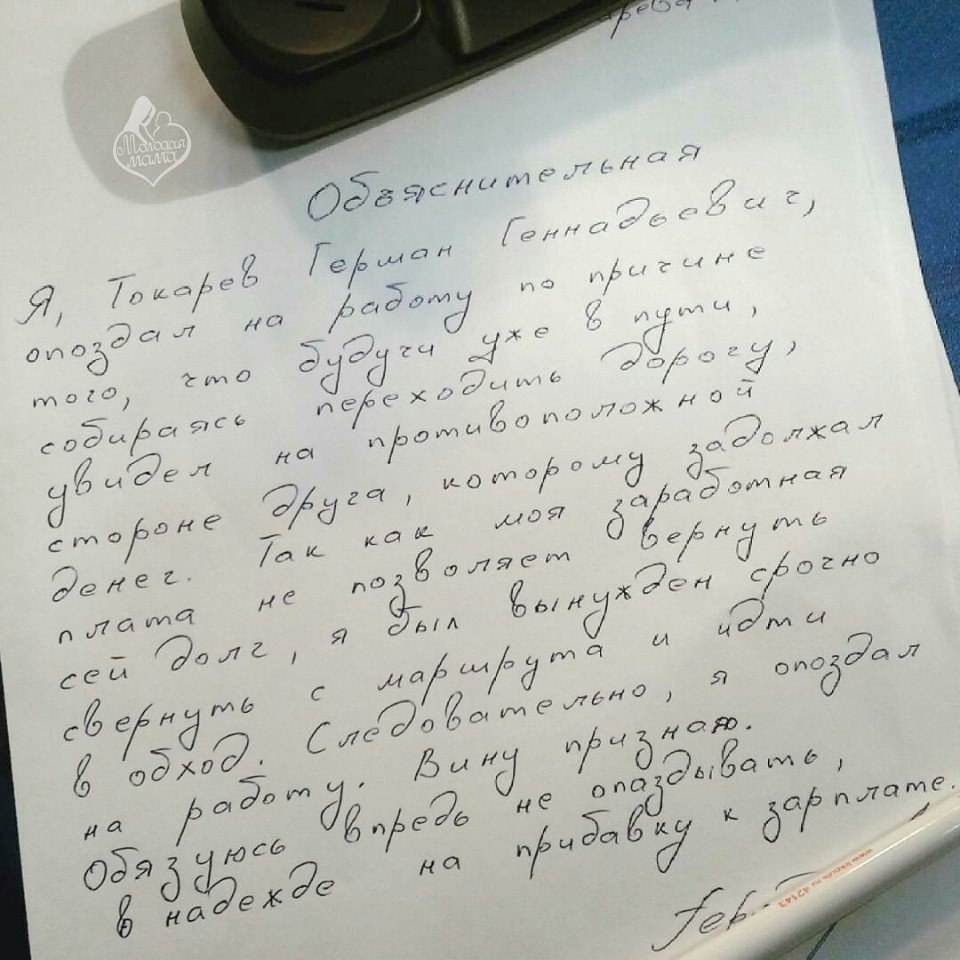 Молодая
мама
Объяснительная
Я, Токарев Герман Геннадьевич,
опоздал на работу по причине
того, что будучи уже в пути,
собираясь переходить дорогу,
увидел на противоположной
стороне друга, которому задолжал
денег. Так как моя заработная
плата не позволяет вернуть
сей долг, я был вынужден срочно
свернуть с маршрута и идти
в обход. Следовательно, я опоздал
на работу. Вину признаю.
Обязуюсь впредь не опаздывать,
в надежде на прибавку к зарплате.